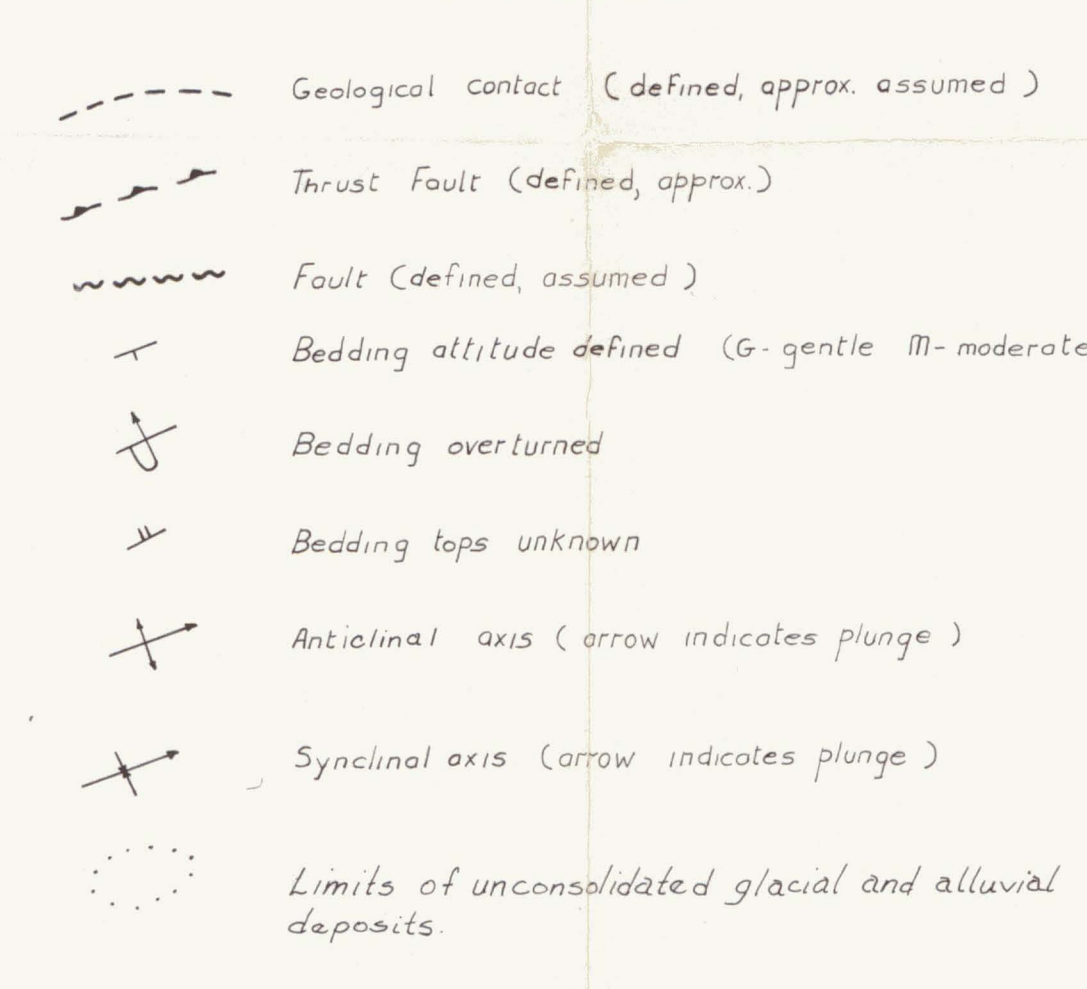 Geological contact (defined, approx. assumed)
Thrust Fault (defined, approx.)
Fault (defined, assumed)
Bedding attitude defined (G- gentle M- moderate
Bedding overturned
Bedding tops unknown
Anticlinal axis (arrow indicates plunge)
Synclinal axis (arrow indicates plunge)
Limits of unconsolidated glacial and alluvial
deposits.